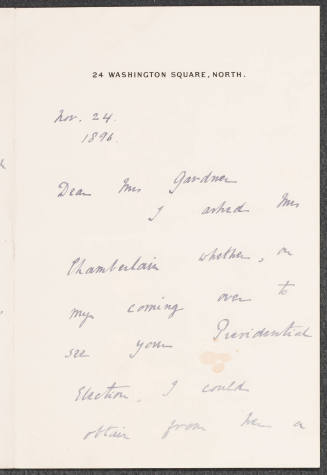 24 WASHINGTON SQUARE, NORTH.
Nov. 24.
1896.
Dear Mrs Gardner
I asked Mrs
Chamberlain whether, on
my coming over to
see your Presidential
Election, I could
obtain from her a